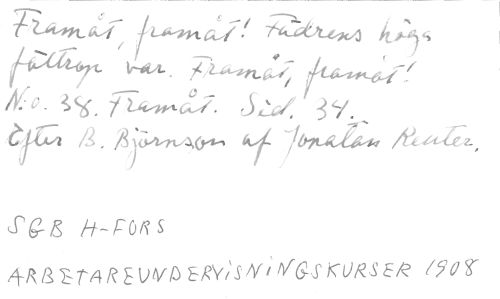 Framåt, framåt! Fädrens höga
fälttrop var. Framåt, framåt!
N:o. 38. Framåt. Sid. 34.
Efter B. Björnson af Jonatan Reuter.
SGB H-FORS
ARBETAREUNDERVISNINGSKURSER 1908